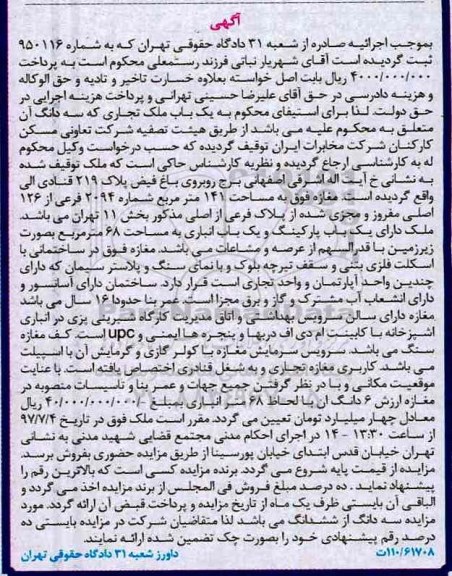 آگهی
بموجب اجرائیه صادره از شعبه ۳۱ دادگاه حقوقی تهران که به شماره ۹۵۰۱۱۶
ثبت گردیده است آقای شهریار نباتی فرزند رستمعلی محکوم است به پرداخت
۴۰۰۰/۰۰۰/۰۰۰ ریال بابت اصل خواسته بعلاوه خسارت تاخیر و تادیه و حق الوکاله
و هزینه دادرسی در حق آقای علیرضا حسینی تهرانی و پرداخت هزینه اجرایی در
حق دولت. لذا برای استیفای محکوم به یک باب ملک تجاری که سه دانگ آن
متعلق به محکوم علیه می باشد از طریق هیئت تصفیه شرکت تعاونی مسکن
کارکنان شرکت مخابرات ایران توقیف گردیده که حسب درخواست وکیل محکوم
له به کارشناسی ارجاع گردیده و نظریه کارشناس حاکی است که ملک توقیف شده
به نشانی خ آیت اله اشرفی اصفهانی برج روبروی باغ فیض پلاک ۲۱۹ قنادی الی
واقع گردیده است مغازه فوق به مساحت ۱۴۱ متر مربع شماره ۲۰۹۴ فرعی از ۱۲۶
اصلی مفروز و مجزی شده از پلاک فرعی از اصلی مذکور بخش ۱۱ تهران می باشد.
ملک دارای یک باب پارکینگ و یک باب انباری به مساحت ۶۸ مترمربع بصورت
زیرزمین با قدرالسهم از عرصه و مشاعات می باشد. مغازه فوق در ساختمانی با
اسکلت فلزی بتنی و سقف تیرچه بلوک و با نمای سنگ و پلاستر سیمان که دارای
چندین واحد آپارتمان و واحد تجاری است قرار دارد. ساختمان دارای آسانسور و
دارای انشعاب آب مشترک و گاز و برق مجزا است. عمر بنا حدودا ۱۶ سال می باشد
مغازه دارای سالن سرویس بهداشتی و اتاق مدیریت کارگاه شیرینی پزی در انباری
اشپزخانه با کابینت ام دی اف دربها و پنجره ها ایمنی و upc است. کف مغازه
سنگ می باشد. سرویس سرمایش مغازه با کولر گازی و گرمایش آن با اسپیلت
می باشد. کاربری مغازه تجاری و به شغل قنادی اختصاص یافته است. با عنایت
موقعیت مکانی و با در نظر گرفتن جمیع جهات و عمر بنا و تاسیسات منصوبه در
مغازه ارزش ۶ دانگ آن با لحاظ ۶۸ متر انباری بمبلغ ۴۰/۰۰۰/۰۰۰/۰۰۰ ریال
معادل چهار میلیارد تومان تعیین می گردد. مقرر است ملک فوق در تاریخ ۹۷/۷/۴
از ساعت ۱۳:۳۰ - ۱۴ در اجرای احکام مدنی مجتمع قضایی شهید مدنی به نشانی
تهران خیابان قدس ابتدای خیابان پورسینا از طریق مزایده حضوری بفروش برسد.
مزایده از قیمت پایه شروع می گردد. برنده مزایده کسی است که بالاترین رقم را
پیشنهاد نماید. ده درصد مبلغ فروش فی المجلس از برنده مزایده اخذ می گردد و
الباقی آن بایستی ظرف یک ماه از تاریخ مزایده و پرداخت قبض آن ارائه گردد. مورد
مزایده سه دانگ از ششدانگ می باشد لذا متقاضیان شرکت در مزایده بایستی ده
درصد رقم پیشنهادی خود را بصورت چک تضمین شده ارائه نمایند.
۱۱۰/۶۱۷۰۸ت داورز شعبه ۳۱ دادگاه حقوقی تهران